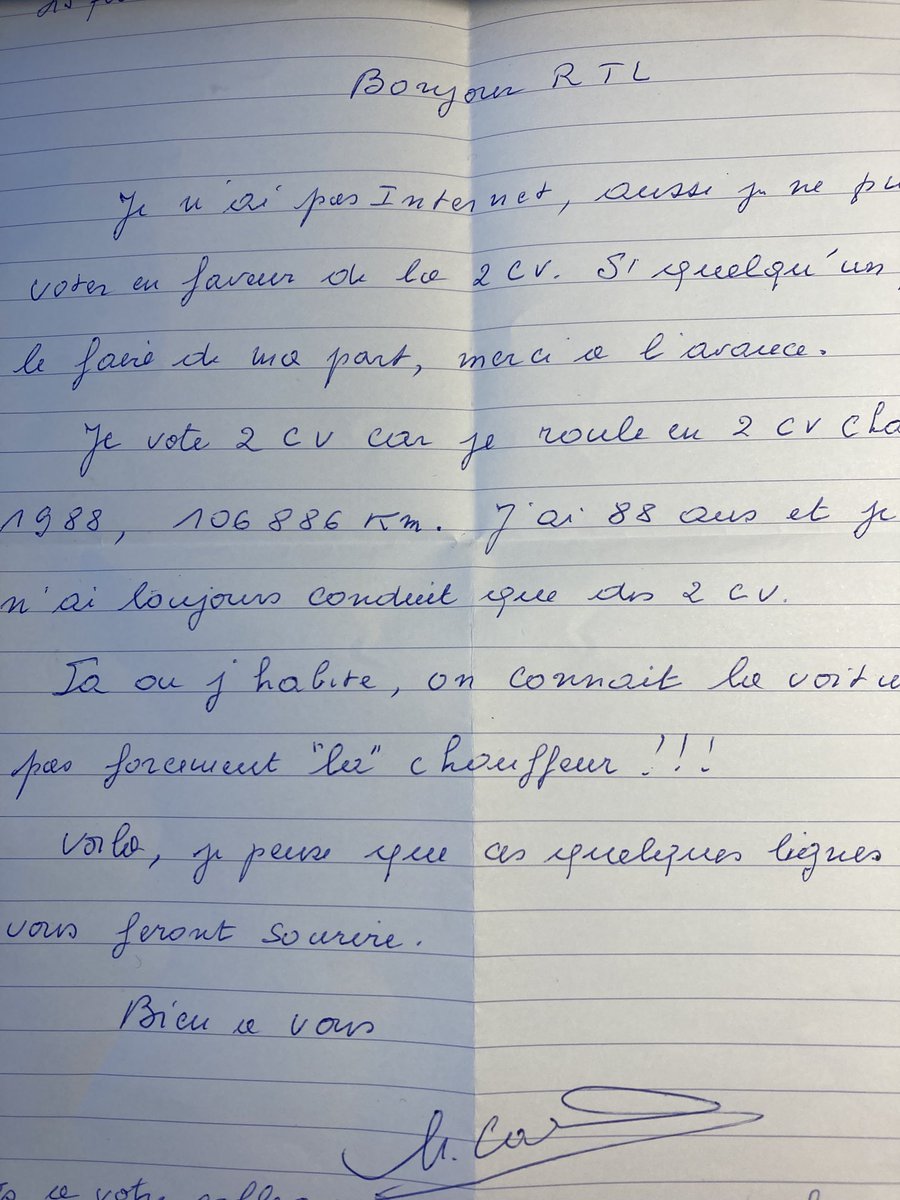 Bonjour RTL
Je n'ai pas Internet, aussi je ne pu
voter en faveur de la 2 CV. Si quelqu'un
le faire de ma part, merci a l'avance.
Je vote 2 CV car je roule en 2 CV Cha
1988, 106 886 Km. J'ai 88 ans et je
n'ai toujours conduit que des 2 CV.
La ou j'habite, on connait la voitu
pas forcement "la" chauffeur !!!
Voila, je pense que ces quelques lignes
vous feront sourire.
Bien a vous
a votre